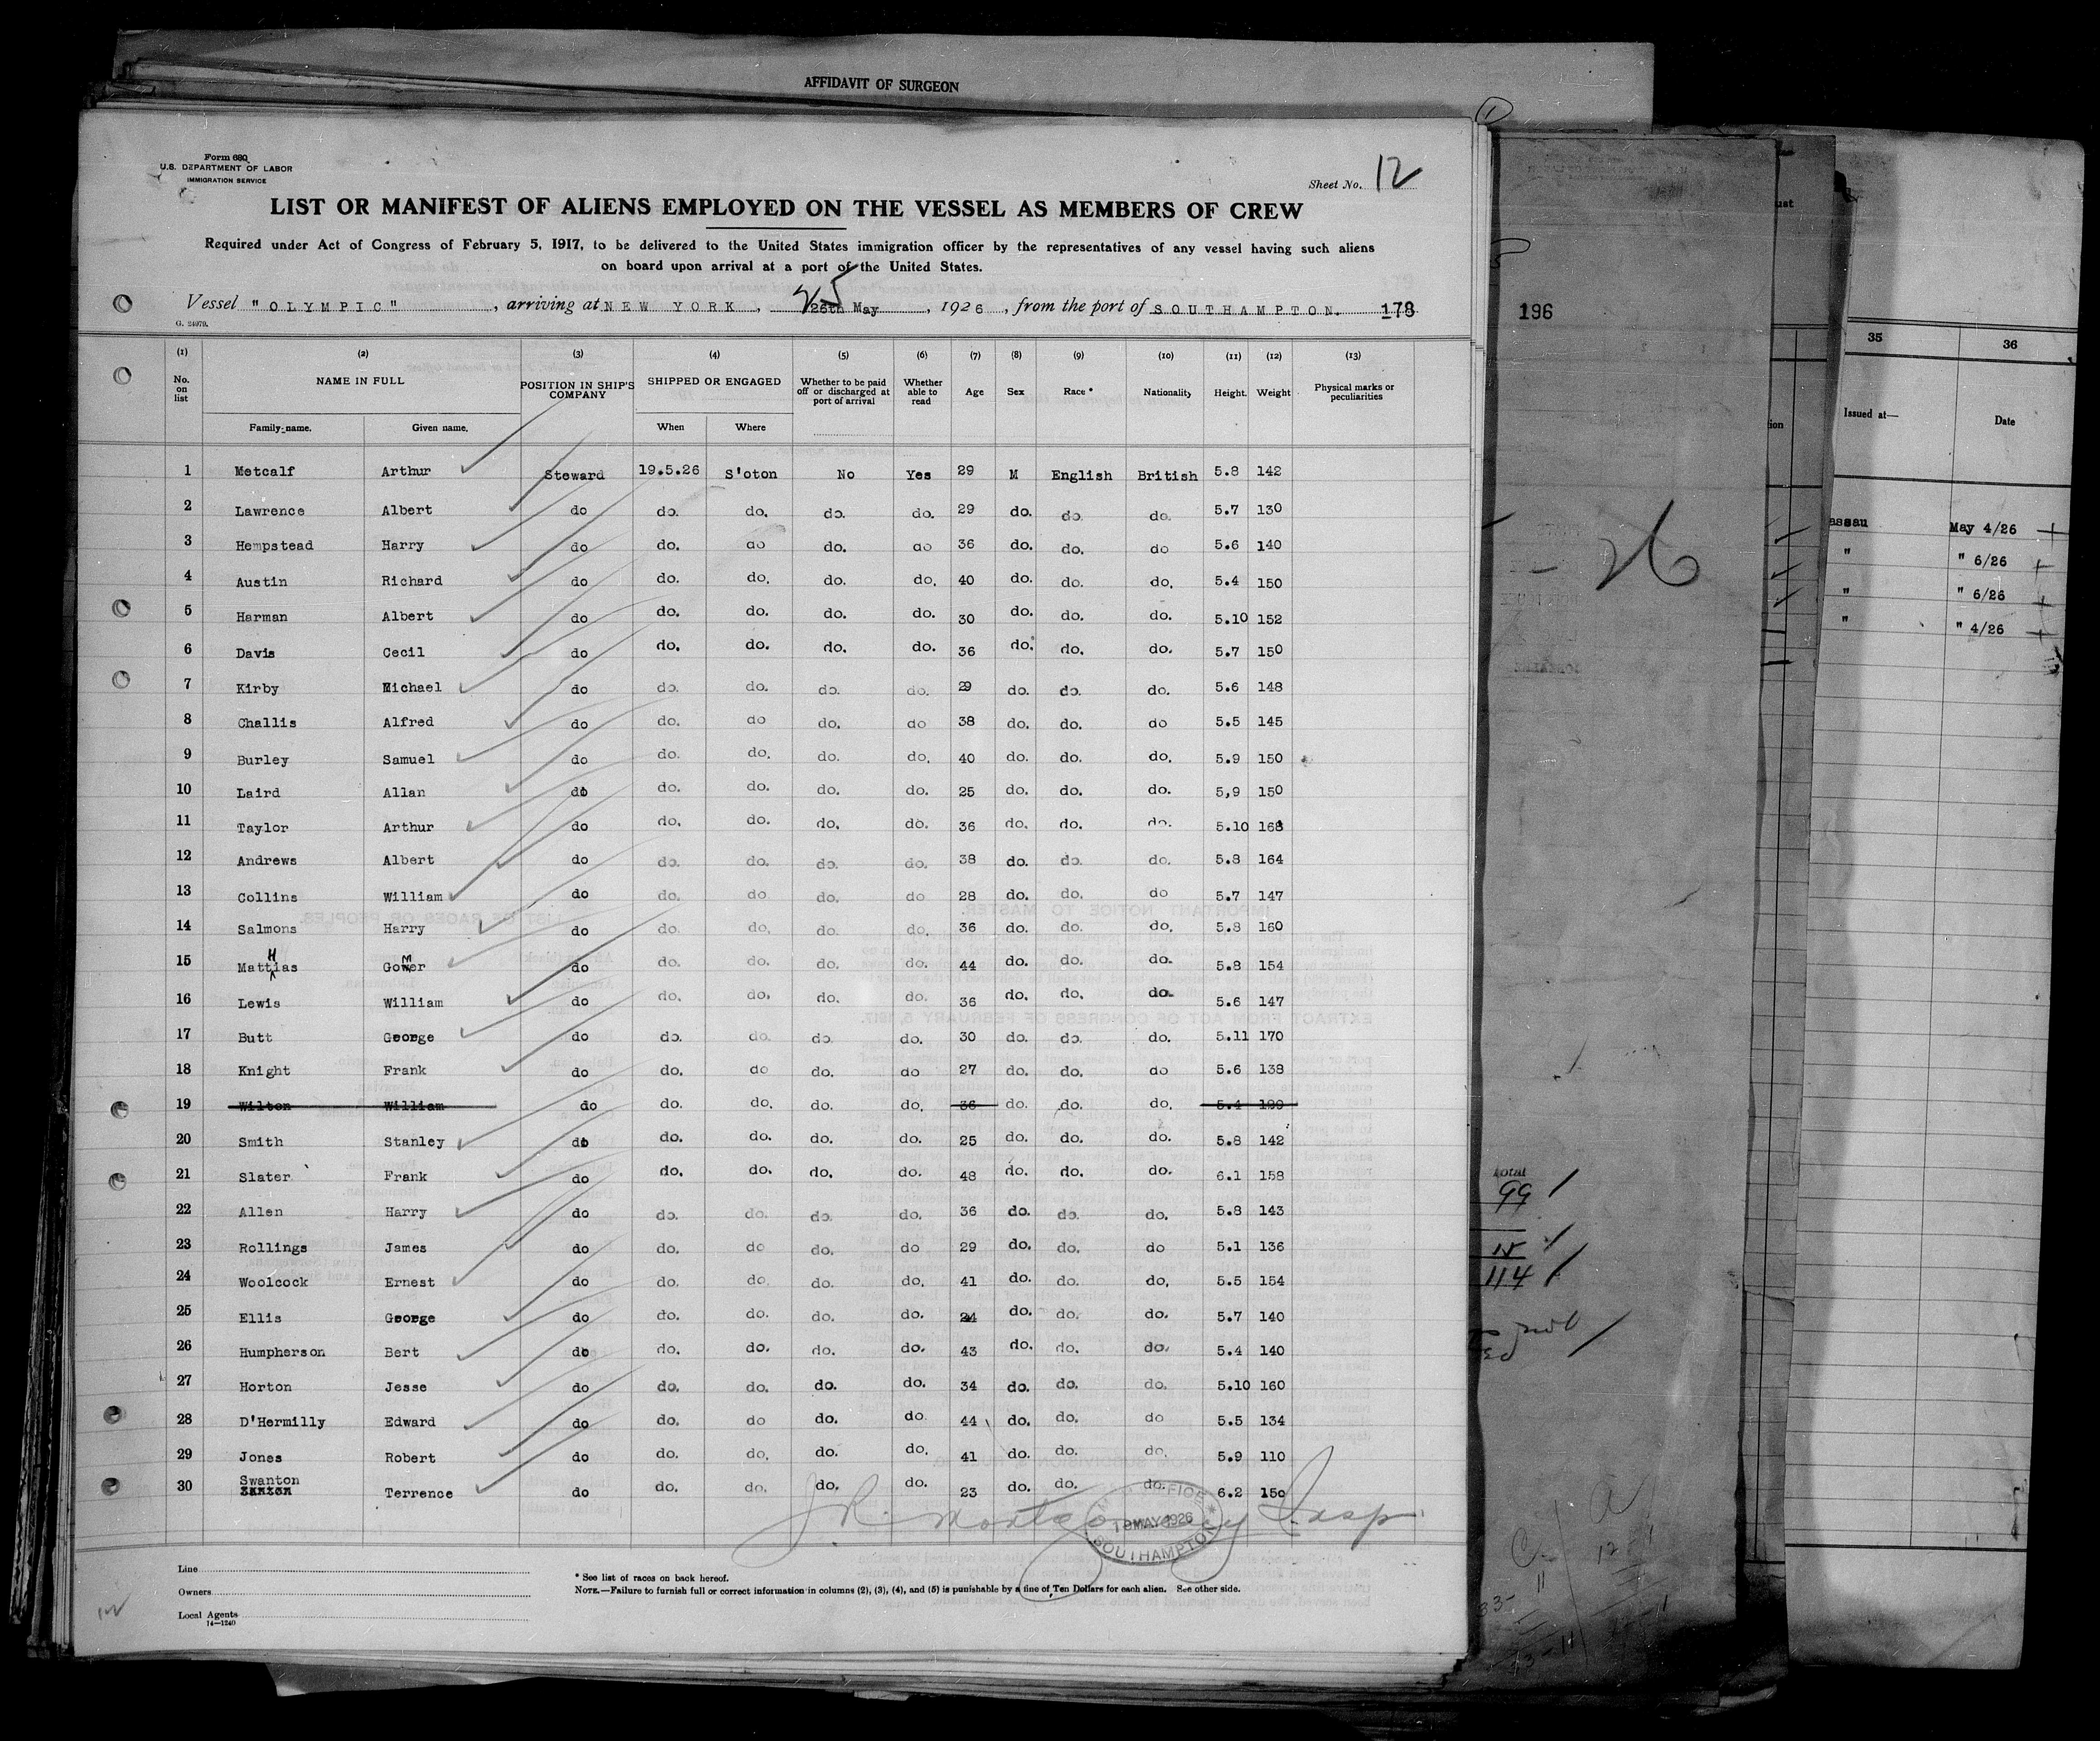 AFFIDAVIT OF SURGEON
Form 680
U.S. DEPARTMENT OF LABOR
IMMIGRATION SERVICE
Sheet No. 12
LIST OR MANIFEST OF ALIENS EMPLOYED ON THE VESSEL AS MEMBERS OF CREW
Required under Act of Congress of February 5, 1917, to be delivered to the United States immigration officer by the representatives of any vessel having such aliens
on board upon arrival at a port of the United States.
25
Vessel "OLYMPIC", arriving at NEW YORK, 26th May, 1926, from the port of SOUTHAMPTON. 178
G. 24979.
(1) (2) (3) (4) (5) (6) (7) (8) (9) (10) (11) (12) (13)
No. on list NAME IN FULL POSITION IN SHIP'S COMPANY SHIPPED OR ENGAGED Whether to be paid off or discharged at port of arrival Whether able to read Age Sex Race* Nationality Height. Weight Physical marks or peculiarities
Family name. Given name. When Where
1 Metcalf Arthur Steward 19.5.26 S'oton No Yes 29 M English British 5.8 142
2 Lawrence Albert do do. do. do. do. 29 do. do. do. 5.7 130
3 Hempstead Harry do do. do do. do 36 do. do. do 5.6 140
4 Austin Richard do do. do. do. do. 40 do. do. do. 5.4 150
5 Harman Albert do do. do. do. do. 30 do. do. do. 5.10 152
6 Davis Cecil do do. do. do. do. 36 do. do. do. 5.7 150
7 Kirby Michael do do. do. do. do. 29 do. do. do. 5.6 148
8 Challis Alfred do do. do do. do 38 do. do. do 5.5 145
9 Burley Samuel do do. do. do. do. 40 do. do. do. 5.9 150
10 Laird Allan do do. do. do. do. 25 do. do. do. 5,9 150
11 Taylor Arthur do do. do. do. do. 36 do. do. do. 5.10 168
12 Andrews Albert do do. do. do. do. 38 do. do. do. 5.8 164
13 Collins William do do. do do. do 28 do. do. do 5.7 147
14 Salmons Harry do do. do. do. do. 36 do. do. do. 5.8 160
H M
15 Mattias Gower do do. do. do. do. 44 do. do. do. 5.8 154
16 Lewis William do do. do. do. do. 36 do. do. do. 5.6 147
17 Butt George do do. do. do. do. 30 do. do. do. 5.11 170
18 Knight Frank do do. do do. do 27 do. do. do 5.6 138
19 Wilton William do do. do. do. do. 36 do. do. do. 5.4
20 Smith Stanley do do. do. do. do. 25 do. do. do. 5.8 142
21 Slater Frank do do. do. do. do. 48 do. do. do. 6.1 158
22 Allen Harry do do. do. do. do. 36 do. do. do. 5.8 143
23 Rollings James do do. do do. do 29 do. do. do 5.1 136
24 Woolcock Ernest do do. do. do. do. 41 do. do. do. 5.5 154
25 Ellis George do do. do. do. do. 24 do. do. do. 5.7 140
26 Humpherson Bert do do. do. do. do. 43 do. do. do. 5.4 140
27 Horton Jesse do do. do. do. do. 34 do. do. do. 5.10 160
28 D'Hermilly Edward do do. do do. do 44 do. do. do 5.5 134
29 Jones Robert do do. do. do. do. 41 do. do. do. 5.9 110
Swanton
30 Terrence do do. do. do. do. 23 do. do. do. 6.2 150
J R Montgomery Insp
OFFICE
18 MAY 1926
SOUTHAMPTON
Line
Owners
Local Agents
14—1240
* See list of races on back hereof.
NOTE.—Failure to furnish full or correct information in columns (2), (3), (4), and (5) is punishable by a fine of Ten Dollars for each alien. See other side.
196
26
total
99
15
114
35 36
Issued at— Date
assau May 4/26
" " 6/26
" " 6/26
" " 4/26